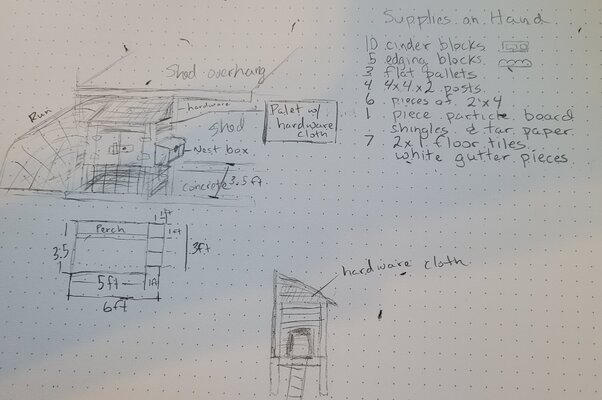 Supplies on Hand
10 cinder blocks
5 edging blocks
3 flat pallets
4 4x4x2 posts
6 pieces of 2x4
1 piece particle board
shingles & tar paper
7 2x1 floor tiles
white gutter pieces
Shed overhang
Run
hardware
Palet w/
hardware
cloth
shed
Nest box
concrete
3.5ft
1ft
Perch
1ft
3.5
3ft
5ft
1ft
6ft
hardware cloth